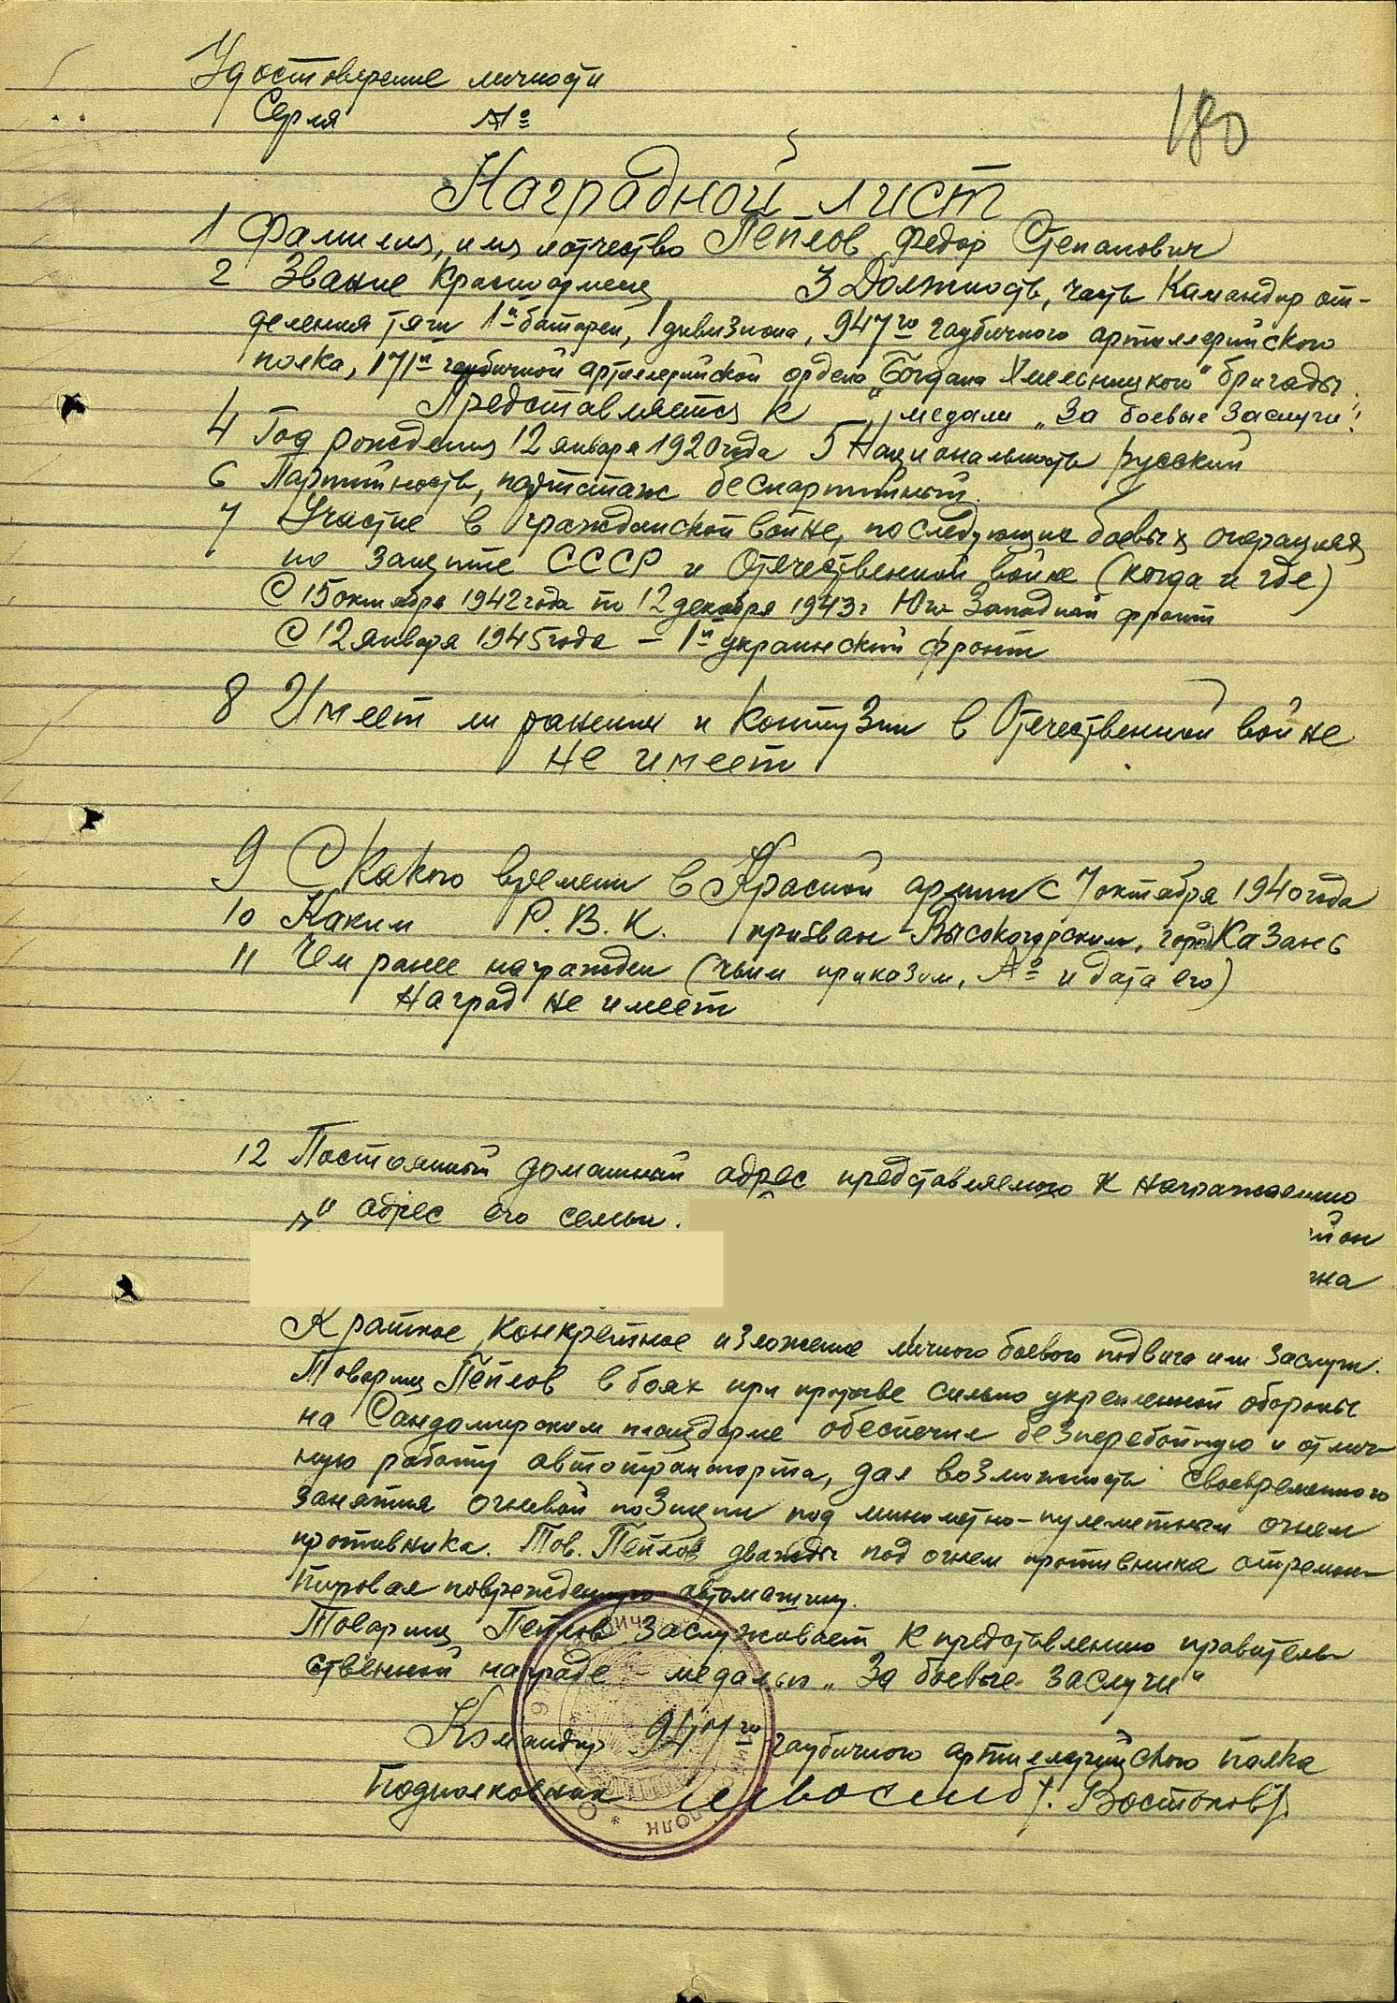 Удостоверение личности
Серия №
180
Наградной лист
1 Фамилия, имя и отчество Пеплов Федор Степанович
2 Звание Красноармеец 3 Должность, часть Камандир от-
деления тяги 1й батареи, 1 дивизиона, 947го гаубичного артиллерийского
полка, 171й гаубичной артиллерийской ордена "Богдана Хмельницкого" бригады.
Представляется к медали "За боевые заслуги".
4 Год рождения 12 января 1920 года 5 Национальность русский
6 Партийность, партстаж беспартийный
7 Участие в гражданской войне, последующих боевых операциях
по защите СССР и Отечественной войне (когда и где)
С 15 октября 1942 года по 12 декабря 1943 г Юго Западный фронт
С 12 января 1945 года – 1й украинский фронт
8 Имеет ли ранения и контузии в Отечественной войне
не имеет
9 С какого времени в Красной армии с 7 октября 1940 года
10 Каким Р.В.К. призван Высокогорским, город Казань
11 Чем ранее награжден (чьим приказом, № и дата его)
Наград не имеет
12 Постоянный домашний адрес представляемого к награждению
и адрес его семьи.
Краткое конкретное изложение личного боевого подвига или заслуги.
Товарищ Пеплов в боях при прорыве сильно укрепленной обороны
на Сандомирском плацдарме обеспечил безперебойную и отлич-
ную работу автотранспорта, дал возможность своевременного
занятия огневой позиции под минометно-пулеметным огнем
противника. Тов. Пеплов дважды под огнем противника отремон-
тировал поврежденную автомашину.
Товарищ Пеплов заслуживает к представлению правитель-
ственной награде – медалью "За боевые заслуги"
Командир 947го гаубичного артиллерийского полка
Подполковник /. Востоков/.